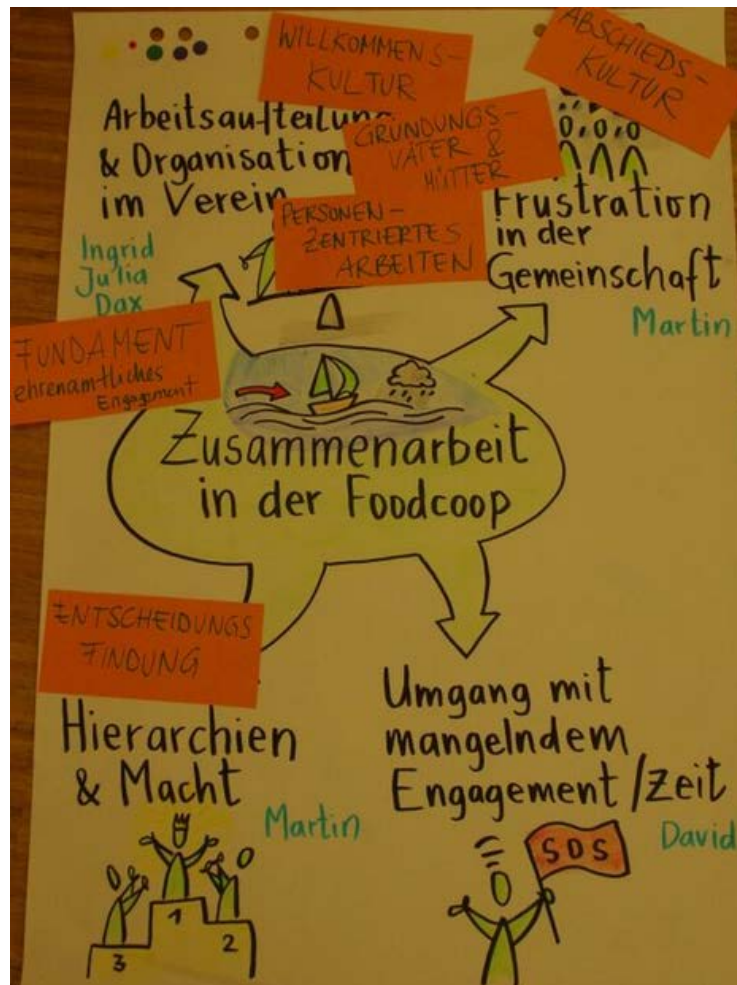 WILLKOMMENS-
KULTUR
ABSCHIEDS-
KULTUR
Arbeitsaufteilung
& Organisation
im Verein
GRÜNDUNGS-
VÄTER &
MÜTTER
PERSONEN-
ZENTRIERTES
ARBEITEN
Ingrid
Julia
Dax
Frustration
in der
Gemeinschaft
Martin
FUNDAMENT
ehrenamtliches
Engagement
Zusammenarbeit
in der Foodcoop
ENTSCHEIDUNGS
FINDUNG
Hierarchien
& Macht
Martin
1
2
3
Umgang mit
mangelndem
Engagement/Zeit
David
SOS